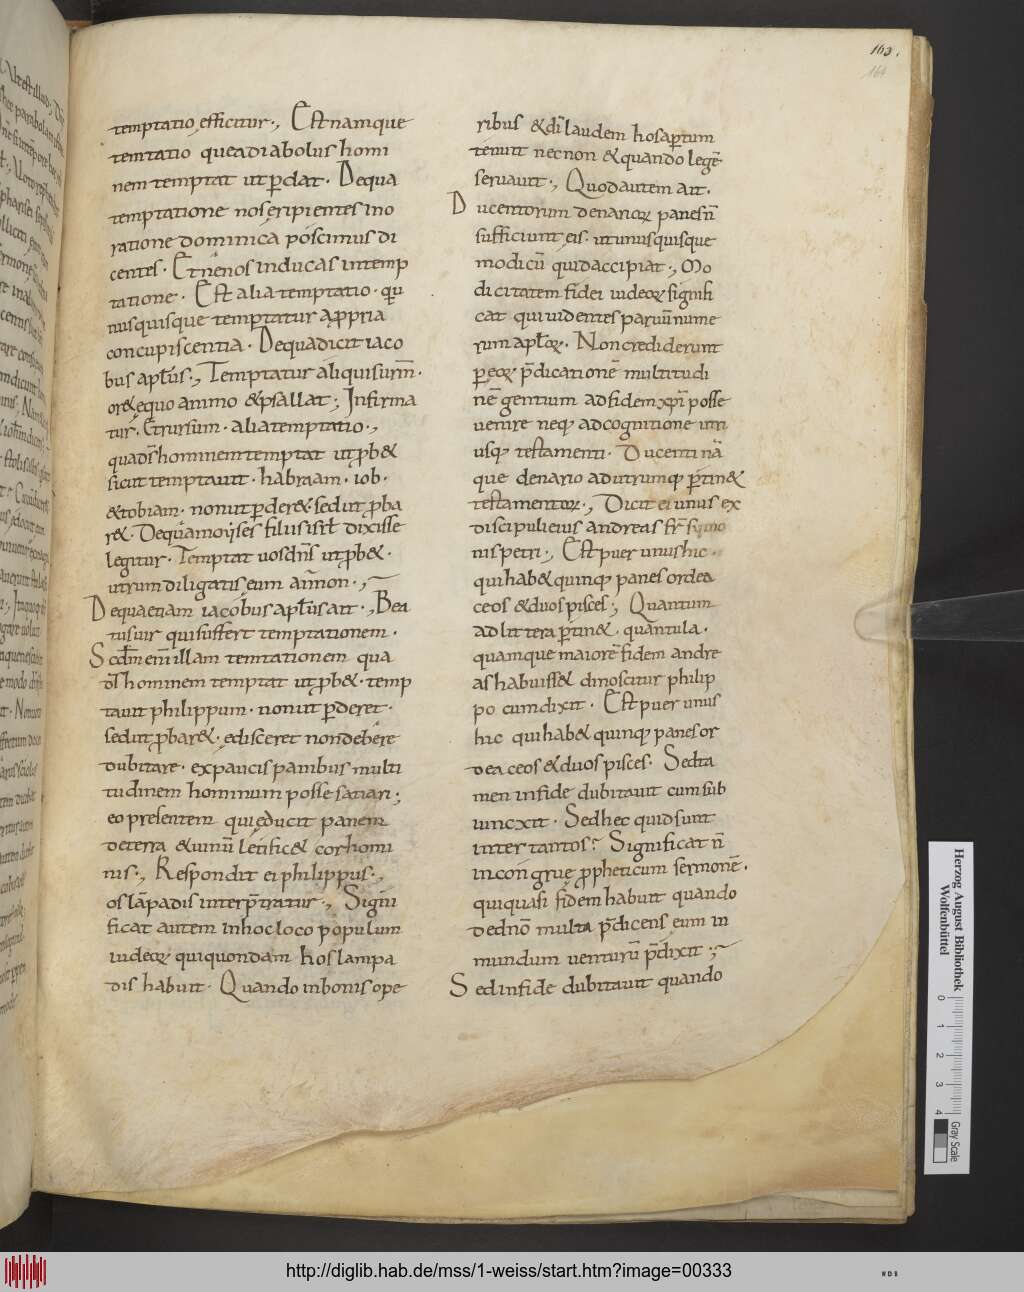 163.
164
temptatio efficitur., Est namque
temtatio quea diabolus homi
nem temptat ut ꝑdat. De qua
temptatione nos eripientes in o
ratione dominica poscimus di
centes. Et ne nos inducas in temp
tationē. Est alia temptatio. qu
nusquisque temptatur a ꝓpria
concupiscentia. De qua dicit iaco
bus aptus., Temptatur aliquis urm̄.
oret ęquo animo & psallat; Infirma
tur. Et rursum. alia temptatio.,
qua dsˉ hominem temptat ut ꝓb&
sicut temptauit. habraam. iob.
& tobiam. non ut ꝑder& sed ut ꝓba
r&. De qua moyses filius isrl̄ dixisse
legitur. Temptat uos dnˉs ut ꝓb&.
utrum diligatis eum an non.,
De qua etiam iacobus apl̄us ait., Bea
tus uir qui suffert temptationem.
Scdm̄ enī illam temtationem qua
hominem temptat ut ꝓb&. temp
tauit philippum. non ut ꝑderet.
sed ut ꝓbar&. edisceret non debere
dubitare. ex paucis panibus multi
tudinem hominum posse satiari;
eo presentem qui educit panem
de terra & uinū letific& cor homi
nis., Respondit ei philippus.,
os lāpadis interp̄tratur., Signi
ficat autem in hoc loco populum
iudeoꝝ qui quondam hos lampa
dis habuit. Quando in bonis ope
ribus & di laudem hos aꝑtum
tenuit nec non & quando legē
seruauit., Quod autem ait.
Ducentorum denarioꝝ panes n̄
sufficiunt eis. ut unusquisque
modicū quid accipiat., Mo
dicitatem fidei iudeoꝝ signifi
cat qui uidentes paruū nume
rum aptoꝝ. Non crediderunt
ꝑ eoꝝ p̄dicationē multitudi
nē gentium ad fidem xp̄i posse
uenire neq; ad cognitione utri
usq; testamenti. Ducenti nā
que denario ad utrumq; ꝑtin&
testamentoꝝ., Dicit ei unus ex
discipuli eius andreas fr̄ symo
nis petri., Est puer unus hic.
qui hab& quinq; panes ordea
ceos & duos pisces., Quantum
ad littera ꝑtin&. quantula.
quamque maiorē fidem andre
as habuiss& dinoscitur philip
po cum dixit. Est puer unus
hic qui hab& quinq; panes or
deaceos & duos pisces. Sed ta
men in fide dubitauit cum sub
iuncxit. Sed hec quid sunt
inter tantos? Significat n̄
incongrue ꝓpheticum sermonē.
qui quasi fidem habuit quando
de dn̄o multa p̄dicens eum in
mundum uenturū p̄dixit;
Sed in fide dubitauit quando
Herzog August Bibliothek
Wolfenbüttel
0 1 2 3 4
Gray Scale
http://diglib.hab.de/mss/1-weiss/start.htm?image=00333